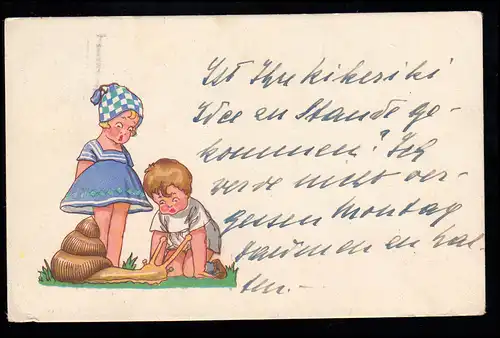 Ist Ihre kikeriki
Idee zu Stande ge-
kommen? Ich
werde nicht ver-
gessen Montag
Daumen zu hal-
ten.-